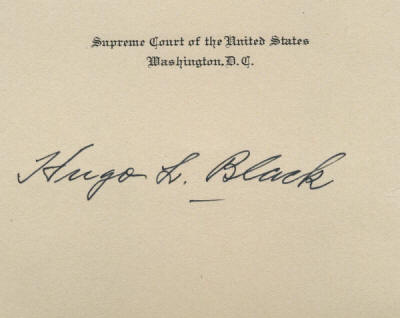 Supreme Court of the United States
Washington, D.C.
Hugo L. Black